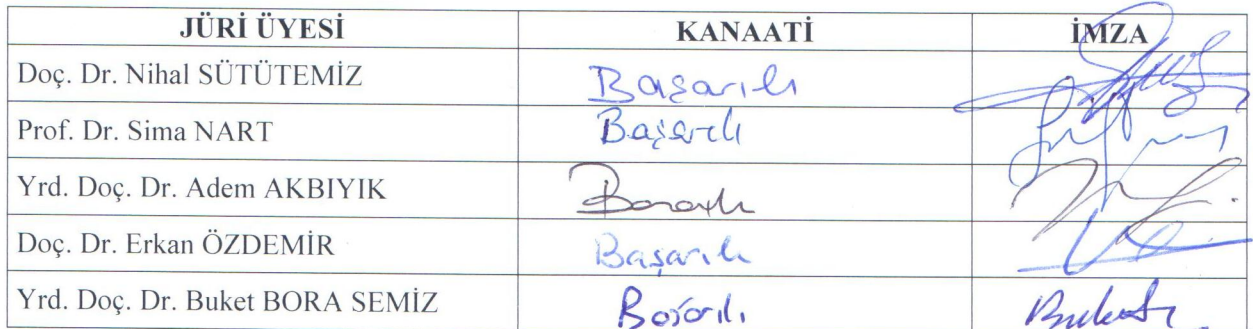 JÜRİ ÜYESİ KANAATİ İMZA
Doç. Dr. Nihal SÜTÜTEMİZ Başarılı
Prof. Dr. Sima NART Başarılı
Yrd. Doç. Dr. Adem AKBIYIK Başarılı
Doç. Dr. Erkan ÖZDEMİR Başarılı
Yrd. Doç. Dr. Buket BORA SEMİZ Başarılı